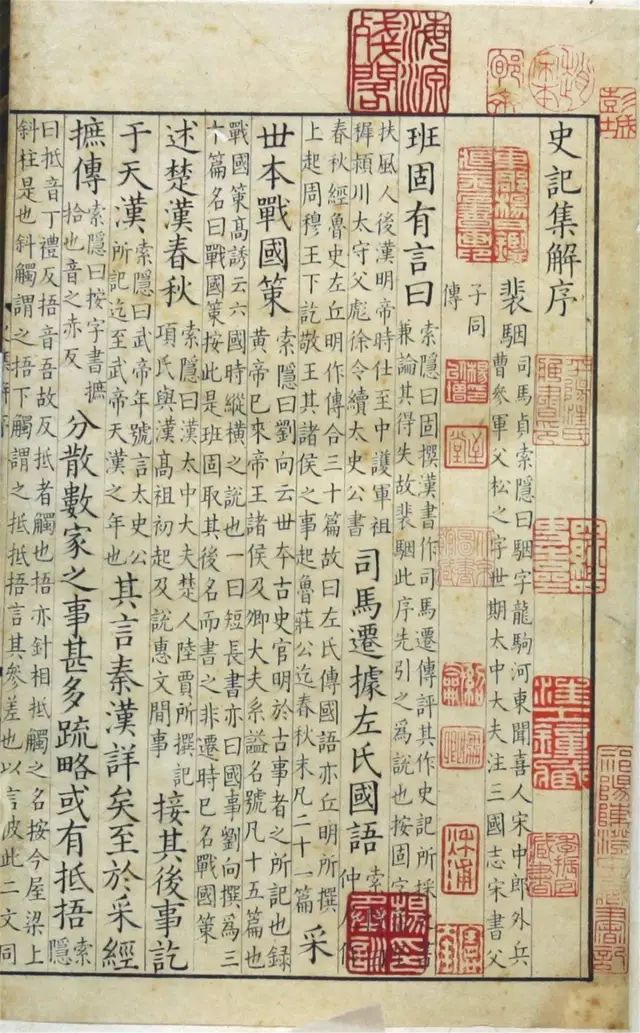 海源殘閣
史記集解序
裴駰
司馬貞索隱曰駰字龍駒河東聞喜人宋中郎外兵
曹參軍父松之字世期太中大夫注三國志宋書父
子同
傳
班固有言曰
索隱曰固撰漢書作司馬遷傳評其作史記所採
兼論其得失故裴駰此序先引之爲說也按固字
扶風人後漢明帝時仕至中護軍祖
穉潁川太守父彪徐令續太史公書
司馬遷據左氏國語
春秋經魯史左丘明作傳合三十篇故曰左氏傳國語亦丘明所撰
上起周穆王下訖敬王其諸侯之事起魯莊公迄春秋末凡二十一篇
采
世本戰國策
索隱曰劉向云世本古史官明於古事者之所記也録
黃帝已來帝王諸侯及卿大夫系謚名號凡十五篇也
戰國策高誘云六國時縱橫之說也一曰短長書亦曰國事劉向撰爲三
十篇名曰戰國策按此是班固取其後名而書之非遷時已名戰國策
述楚漢春秋
索隱曰漢太中大夫楚人陸賈所撰記
項氏與漢高祖初起及說惠文間事
接其後事訖
于天漢
索隱曰武帝年號言太史公
所記迄至武帝天漢之年也
其言秦漢詳矣至於采經
摭傳
索隱曰按字書摭
拾也音之赤反
分散數家之事甚多疏略或有抵捂
索
隱
曰抵音丁禮反捂音吾故反抵者觸也捂亦針相抵觸之名按今屋梁上
斜柱是也斜觸謂之捂下觸謂之抵抵捂言其參差也以言彼此二文同